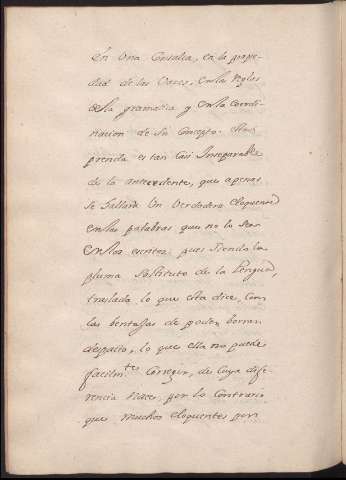 en Una Consulta, en la propie-
dad de las Voces, en las Reglas
de la gramatica y en la coordi-
nacion de su Concepto. Esta
prenda es tan Casi Inseparable
de la antecedente, que apenas
se hallará Un Verdadero eloquente
en las palabras que no lo sea
en los escritos, pues siendo la
pluma sostituto de la lengua,
traslada lo que esta dice, con
las bentajas de poder borrar
despacio, lo que ella no puede
facilmtes Corregir, de Cuya dife-
rencia nace, por lo Contrario
que muchos eloquentes por